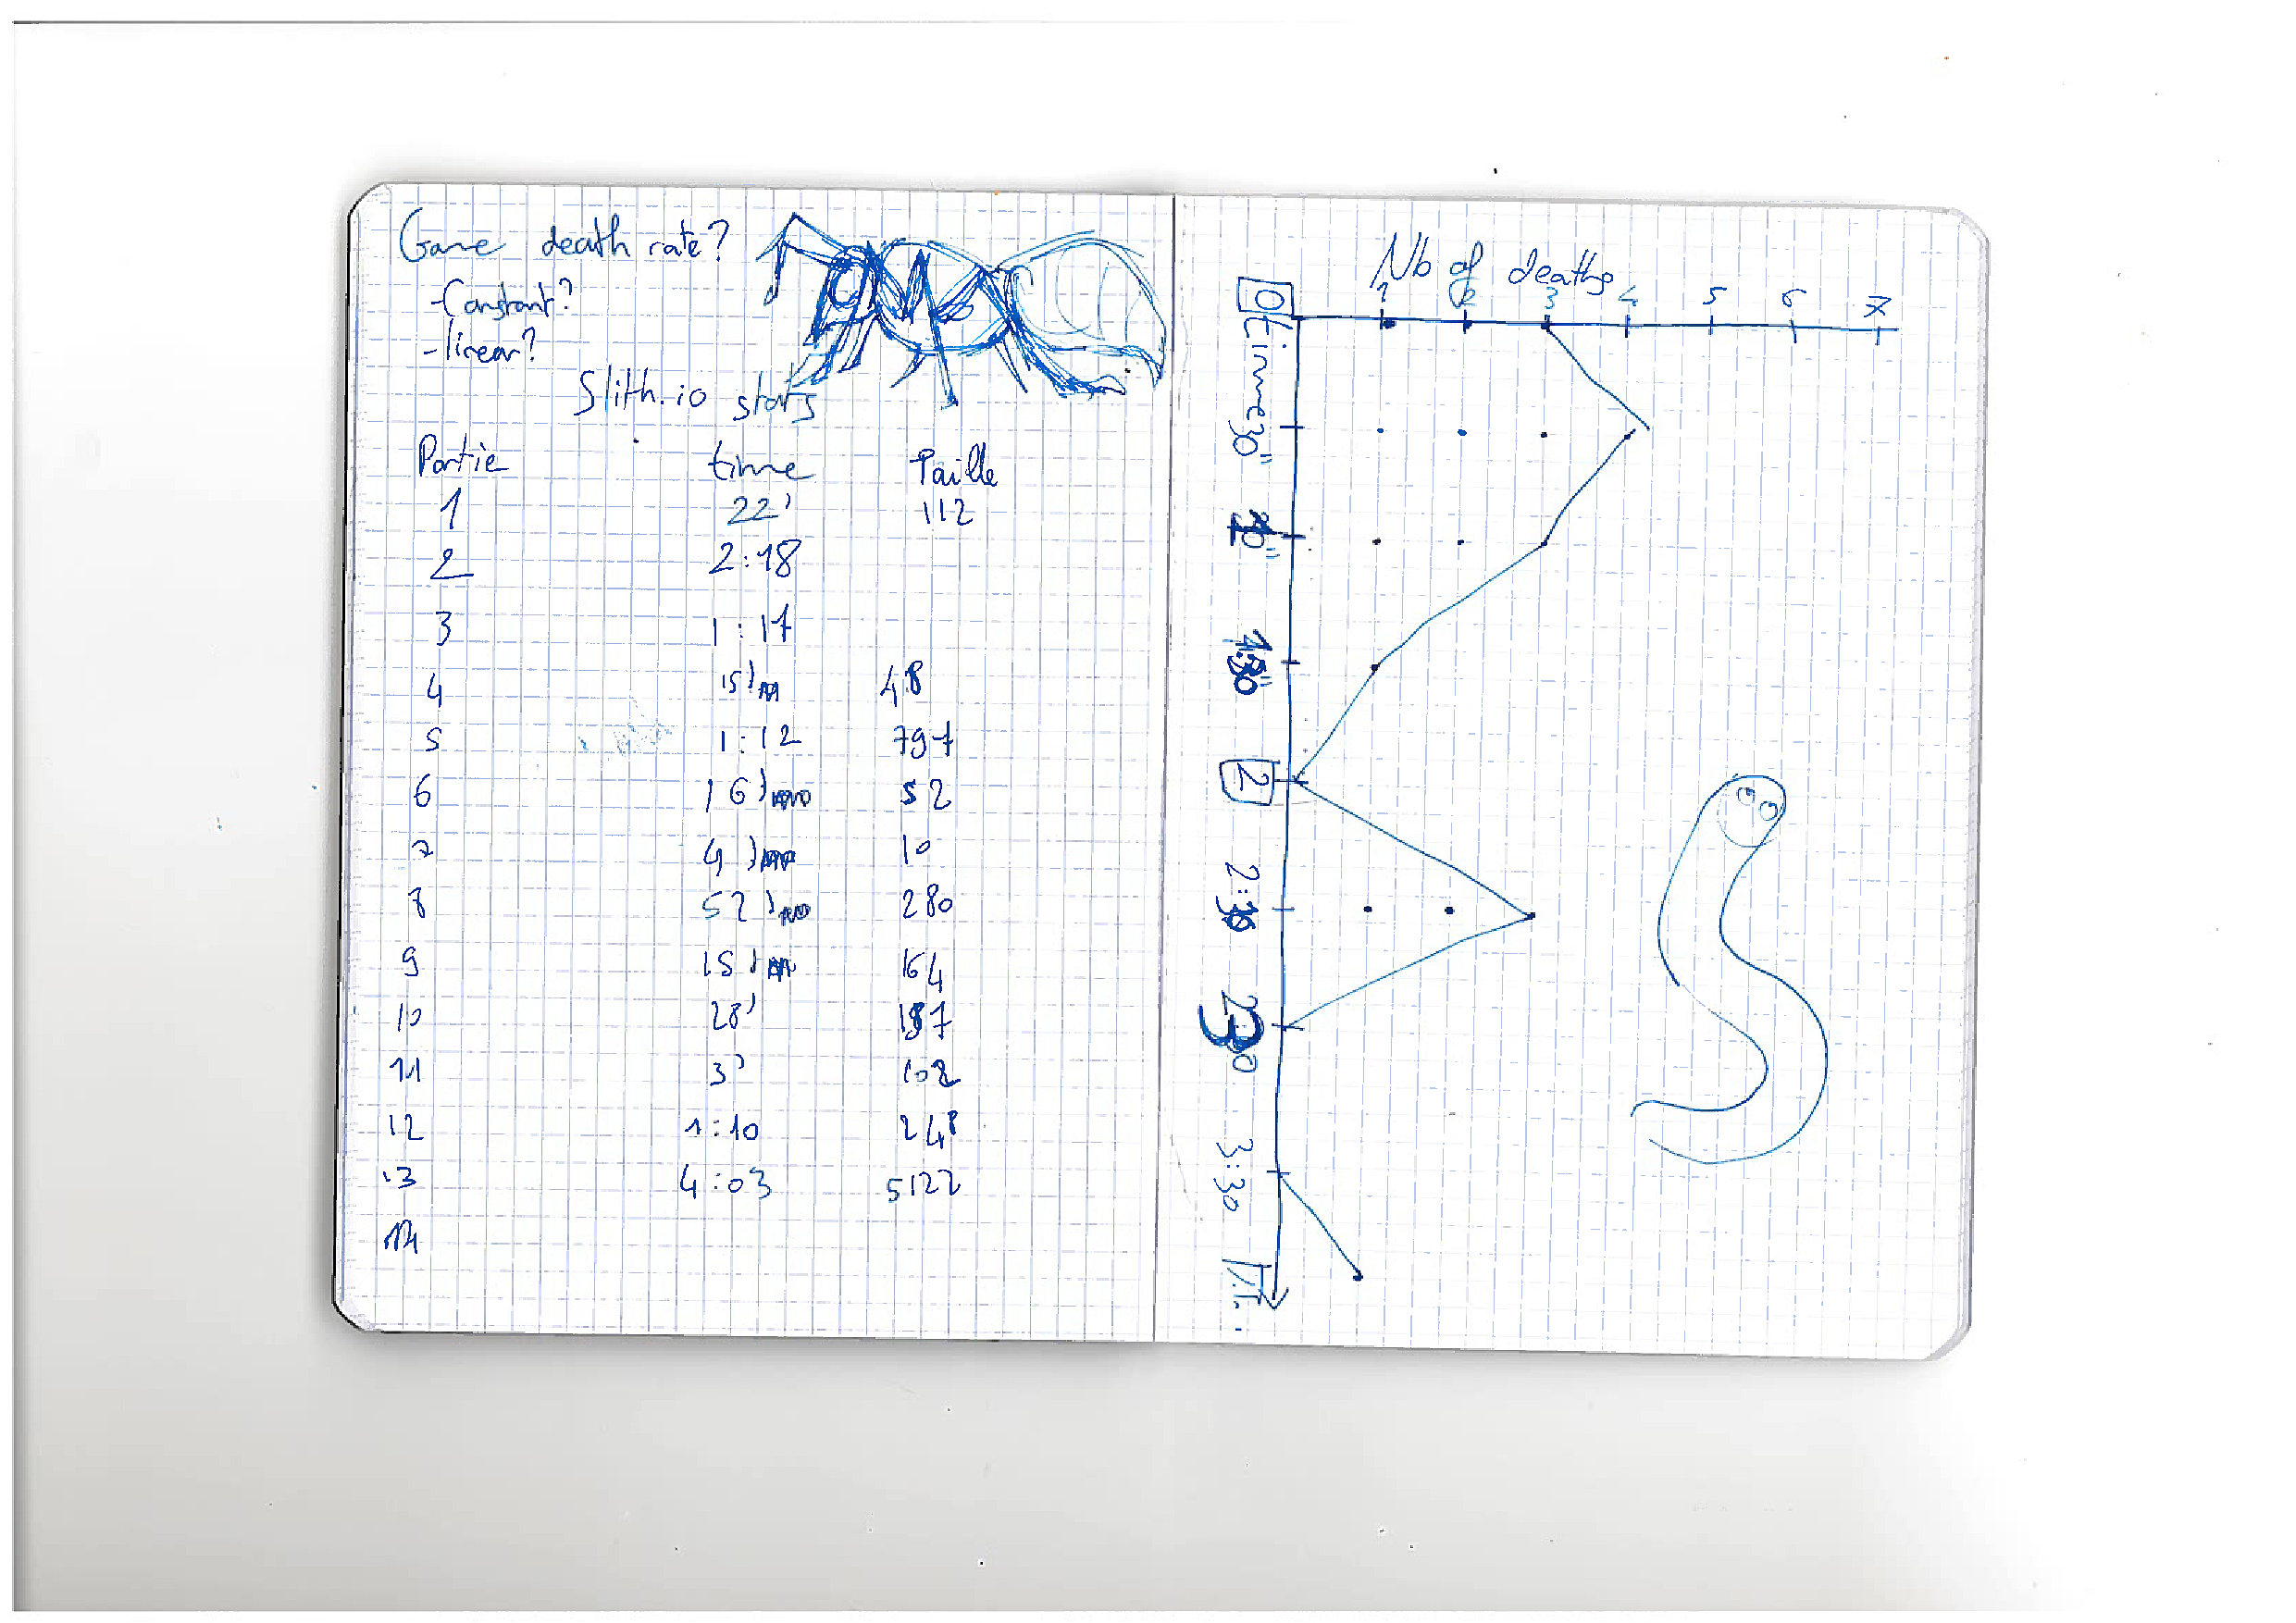 Game death rate?
-Constant?
-linear?
Slith.io stats
Partie time Taille
1 22' 112
2 2:18
3 1:17
4 15' 48
5 1:12 797
6 16' 52
7 4' 10
8 52' 280
9 15' 164
10 28' 187
11 3' 102
12 1:10 248
13 4:03 5122
14
Nb of deaths
1 2 3 4 5 6 7
0 time
30"
1
1:30
2
2:30
3
3:30